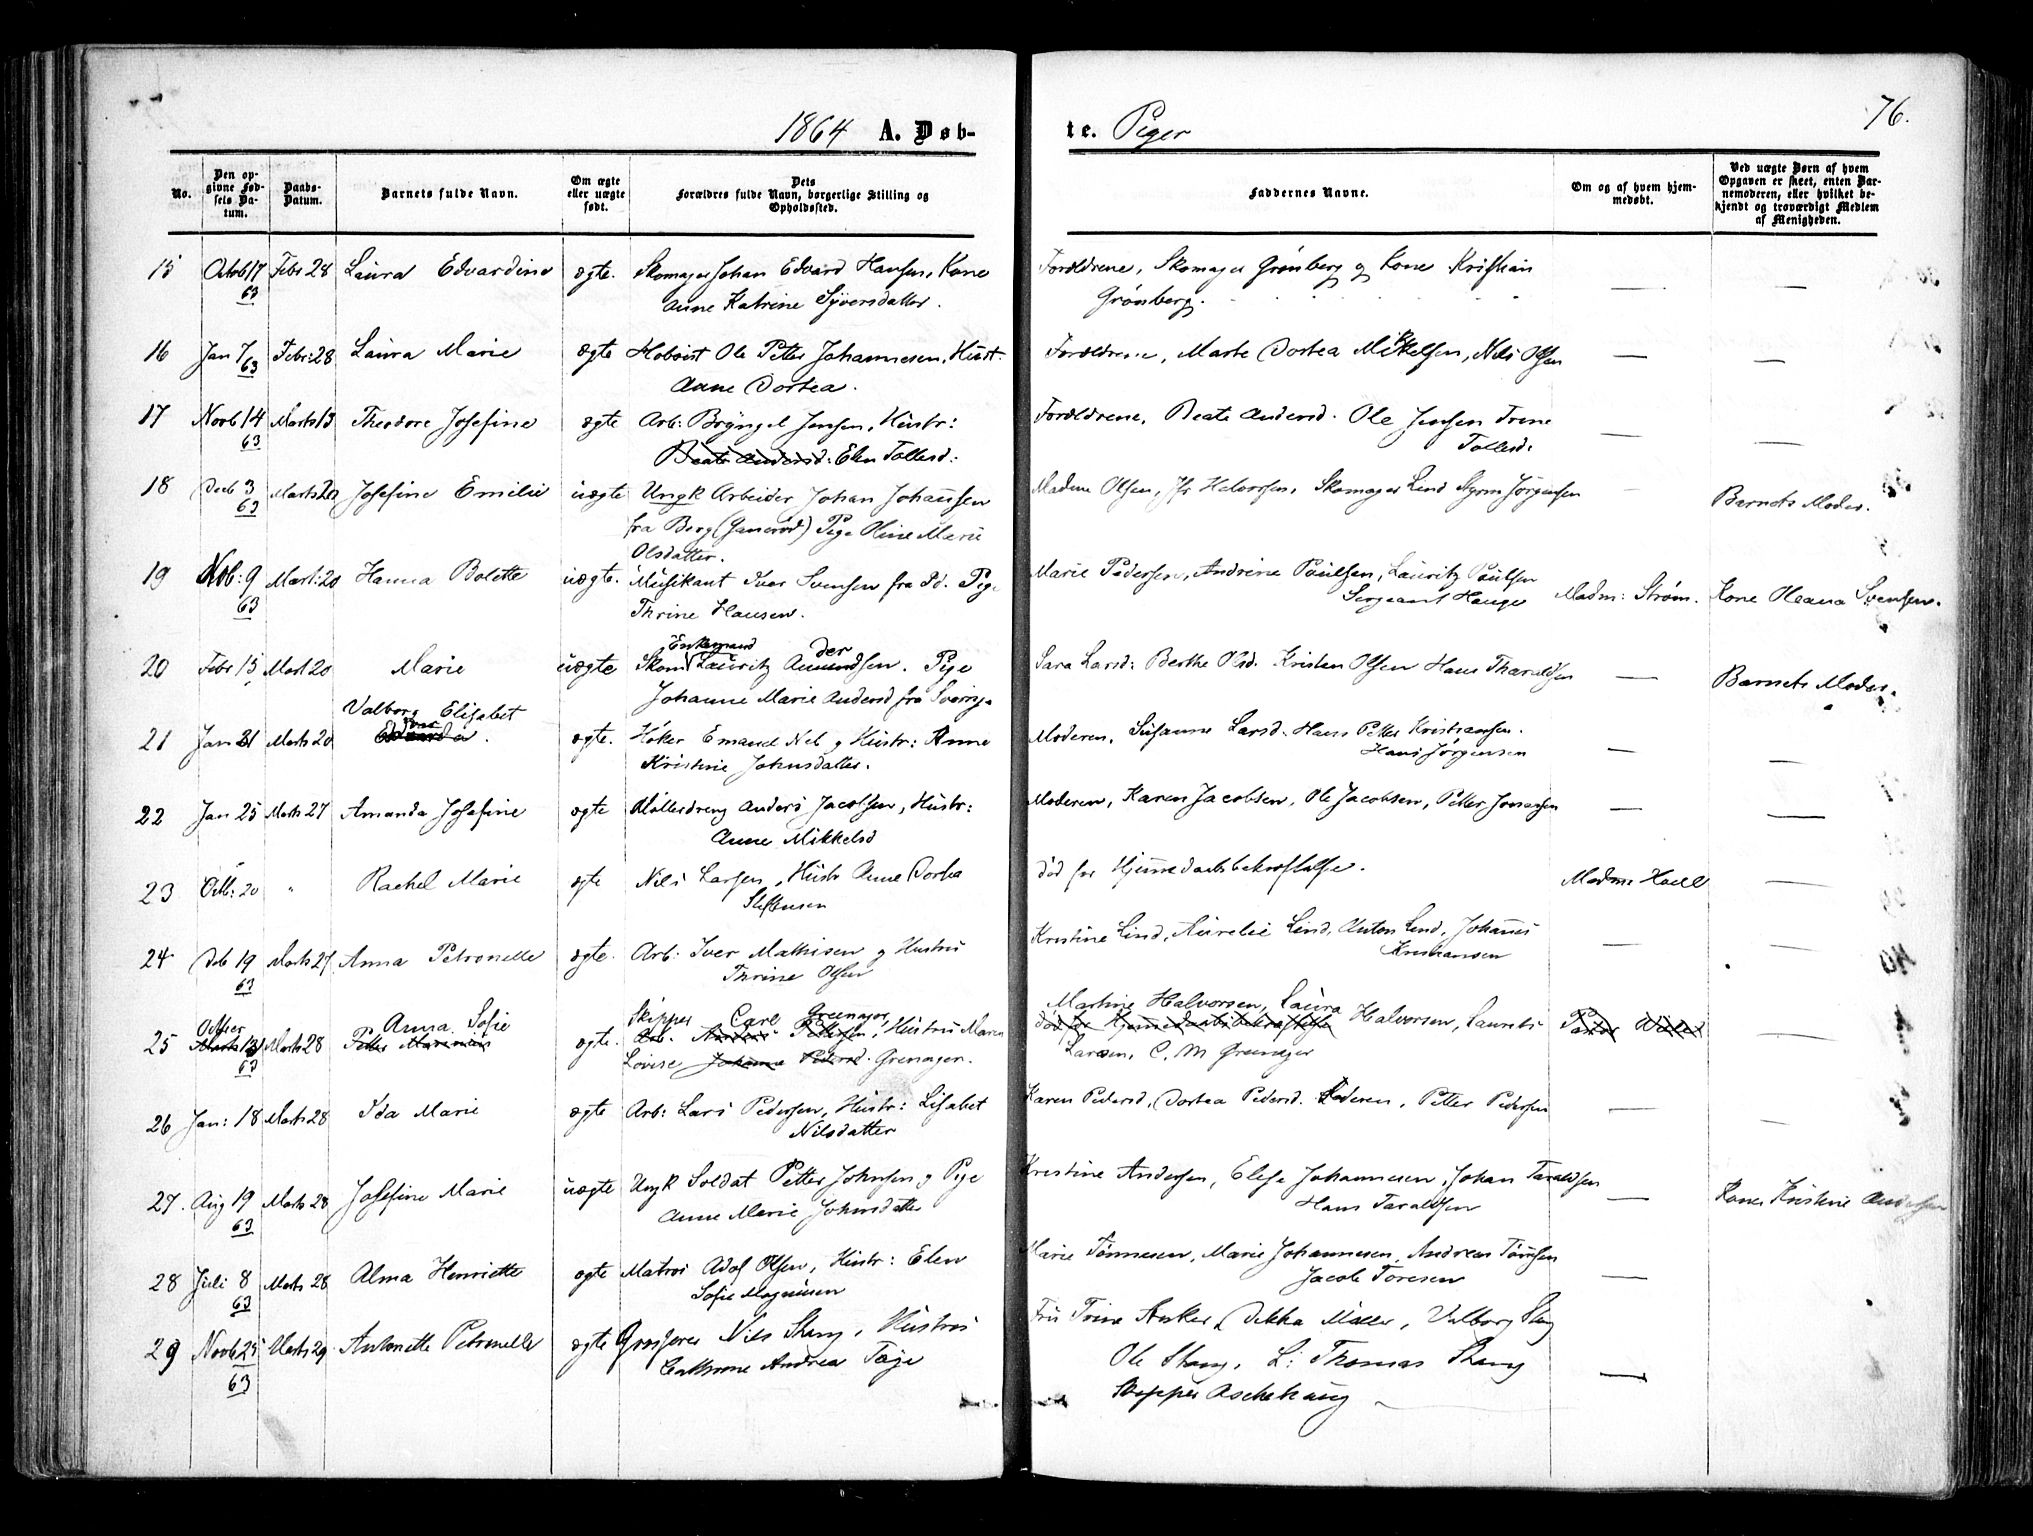 1864 A. Døb- te. Piger 76.
No.
Den op-
givne Fød-
sels Da-
tum.
Daabs-
Datum.
Barnets fulde Navn.
Om ægte
eller uægte
født.
Dets
Forældres fulde Navn, borgerlige Stilling og
Opholdssted.
Faddernes Navne.
Om og af hvem hjem-
medøbt.
Ved uægte Børn af hvem
Opgaven er skeet, enten Bar-
nemoderen, eller hvilket be-
kjendt og troværdigt Medlem
af Menigheden.
15 Octob 17 Febr 28 Laura Edvardine ægte. Skomager Johan Edvard Hansen, Kone Forældrene, Skomager Grønberg og Kone Kristian
63 Anne Katrine Syversdatter. Grønberg.
16 Jan 7 Febr: 28 Laura Marie ægte Hoboist Ole Petter Johannesen, Hust: Forældrene, Marte Dortea Mikkelsen, Nils Olsen
63 Anne Dortea.
17 Novb 14 Marts 13 Theodore Josefine ægte Arb: Bryngel Jensen, Hustr: Forældrene, Beate Andersd. Ole Jensen Trine
63 Beate Andersd: Elen Tollesd: Tollesd:
18 Decb 3 Marts 20 Josefine Emilie uægte Ungk Arbeider Johan Johansen Madme Olsen, Jfr Halvorsen, Skomager Lind Jørgensen Barnets Moder.
63 fra Berg Pige Oline Marie
Olsdatter.
19 Nob: 9 Mart: 20 Hanna Bolette uægte. Musikant Iver Svensen fra Pige Marie Pedersen, Andrine Paulsen, Lauritz Paulsen
63 Thrine Hansen. Sergeant Hauge Madm: Strøm. Kone Oleana Svensen.
Enkemand der
20 Febr 15 Mart 20 Marie uægte Skom Lauritz Amundsen. Pige Sara Larsd: Berthe Olsd. Kristen Olsen Hans Tharaldsen Barnets Moder.
Johanne Marie Andersd fra Sverige
Valborg Elisabet
21 Jan 31 Marts 20 ægte. Høker Emanuel Neb og Hustr: Anne Moderen, Susanne Larsd. Hans Petter Kristiansen.
Kristine Johnsdatter. Hans Jørgensen
22 Jan 25 Marts 27 Amanda Josefine ægte Møllerdreng Anders Jacobsen, Hustr: Moderen, Karen Jacobsen, Ole Jacobsen, Petter
Anne Mikkelsd
23 Octb: 20 " Rachel Marie ægte Nils Larsen, Hustr Anne Dortea død før Hjemmedaabsbekræftelse. Madme Hoell
Steffensen
24 Decb 19 Marts 27 Anna Petronelle ægte. Arb: Iver Mathisen og Hustru Kristine Lind, Aurelie Lind, Anton Lind, Johannes
63 Thrine Olsen Kristiansen
Octber Anna Sofie Skipper Carl Grenager, Martine Halvorsen, Laura
25 Marts 28 Petter ægte. Arb. Anders Pettersen, Hustru Maren død før Hjemmedaabsbekræftelse Halvorsen, Laurits
63 Lovise Johanne Pedersd. Grenager. Larsen, C. M Grenager
26 Jan: 18 Marts 28 Ida Marie ægte Arb: Lars Pedersen, Hustr: Lisabet Karen Pedersd, Dortea Pedersd. Faderen, Petter Pedersen
Nilsdatter
27. Aug 19 Marts 28 Josefine Marie uægte Ungk Soldat Petter Johnsen og Pige Kristine Andersen, Elise Johannesen, Johan Taraldsen Kone Kristine Andersen
63 Anne Marie Johnsdatter Hans Taraldsen
28 Juli 8 Marts 28 Alma Henriette ægte Matros Adof Olsen, Hustr: Elen Marie Tønnesen, Marie Johannesen, Andreas Tønnesen
63 Sofie Magnussen Jacob Toresen
29 Novb 25 Marts 29 Antonette Petronelle ægte Grosserer Nils Stang, Hustru Fru Trine Anker, Dikka Møller, Valborg Stang
63 Cathrine Andrea Tøge Ole Stang, L: Thomas Stang
Skipper Aschehaug